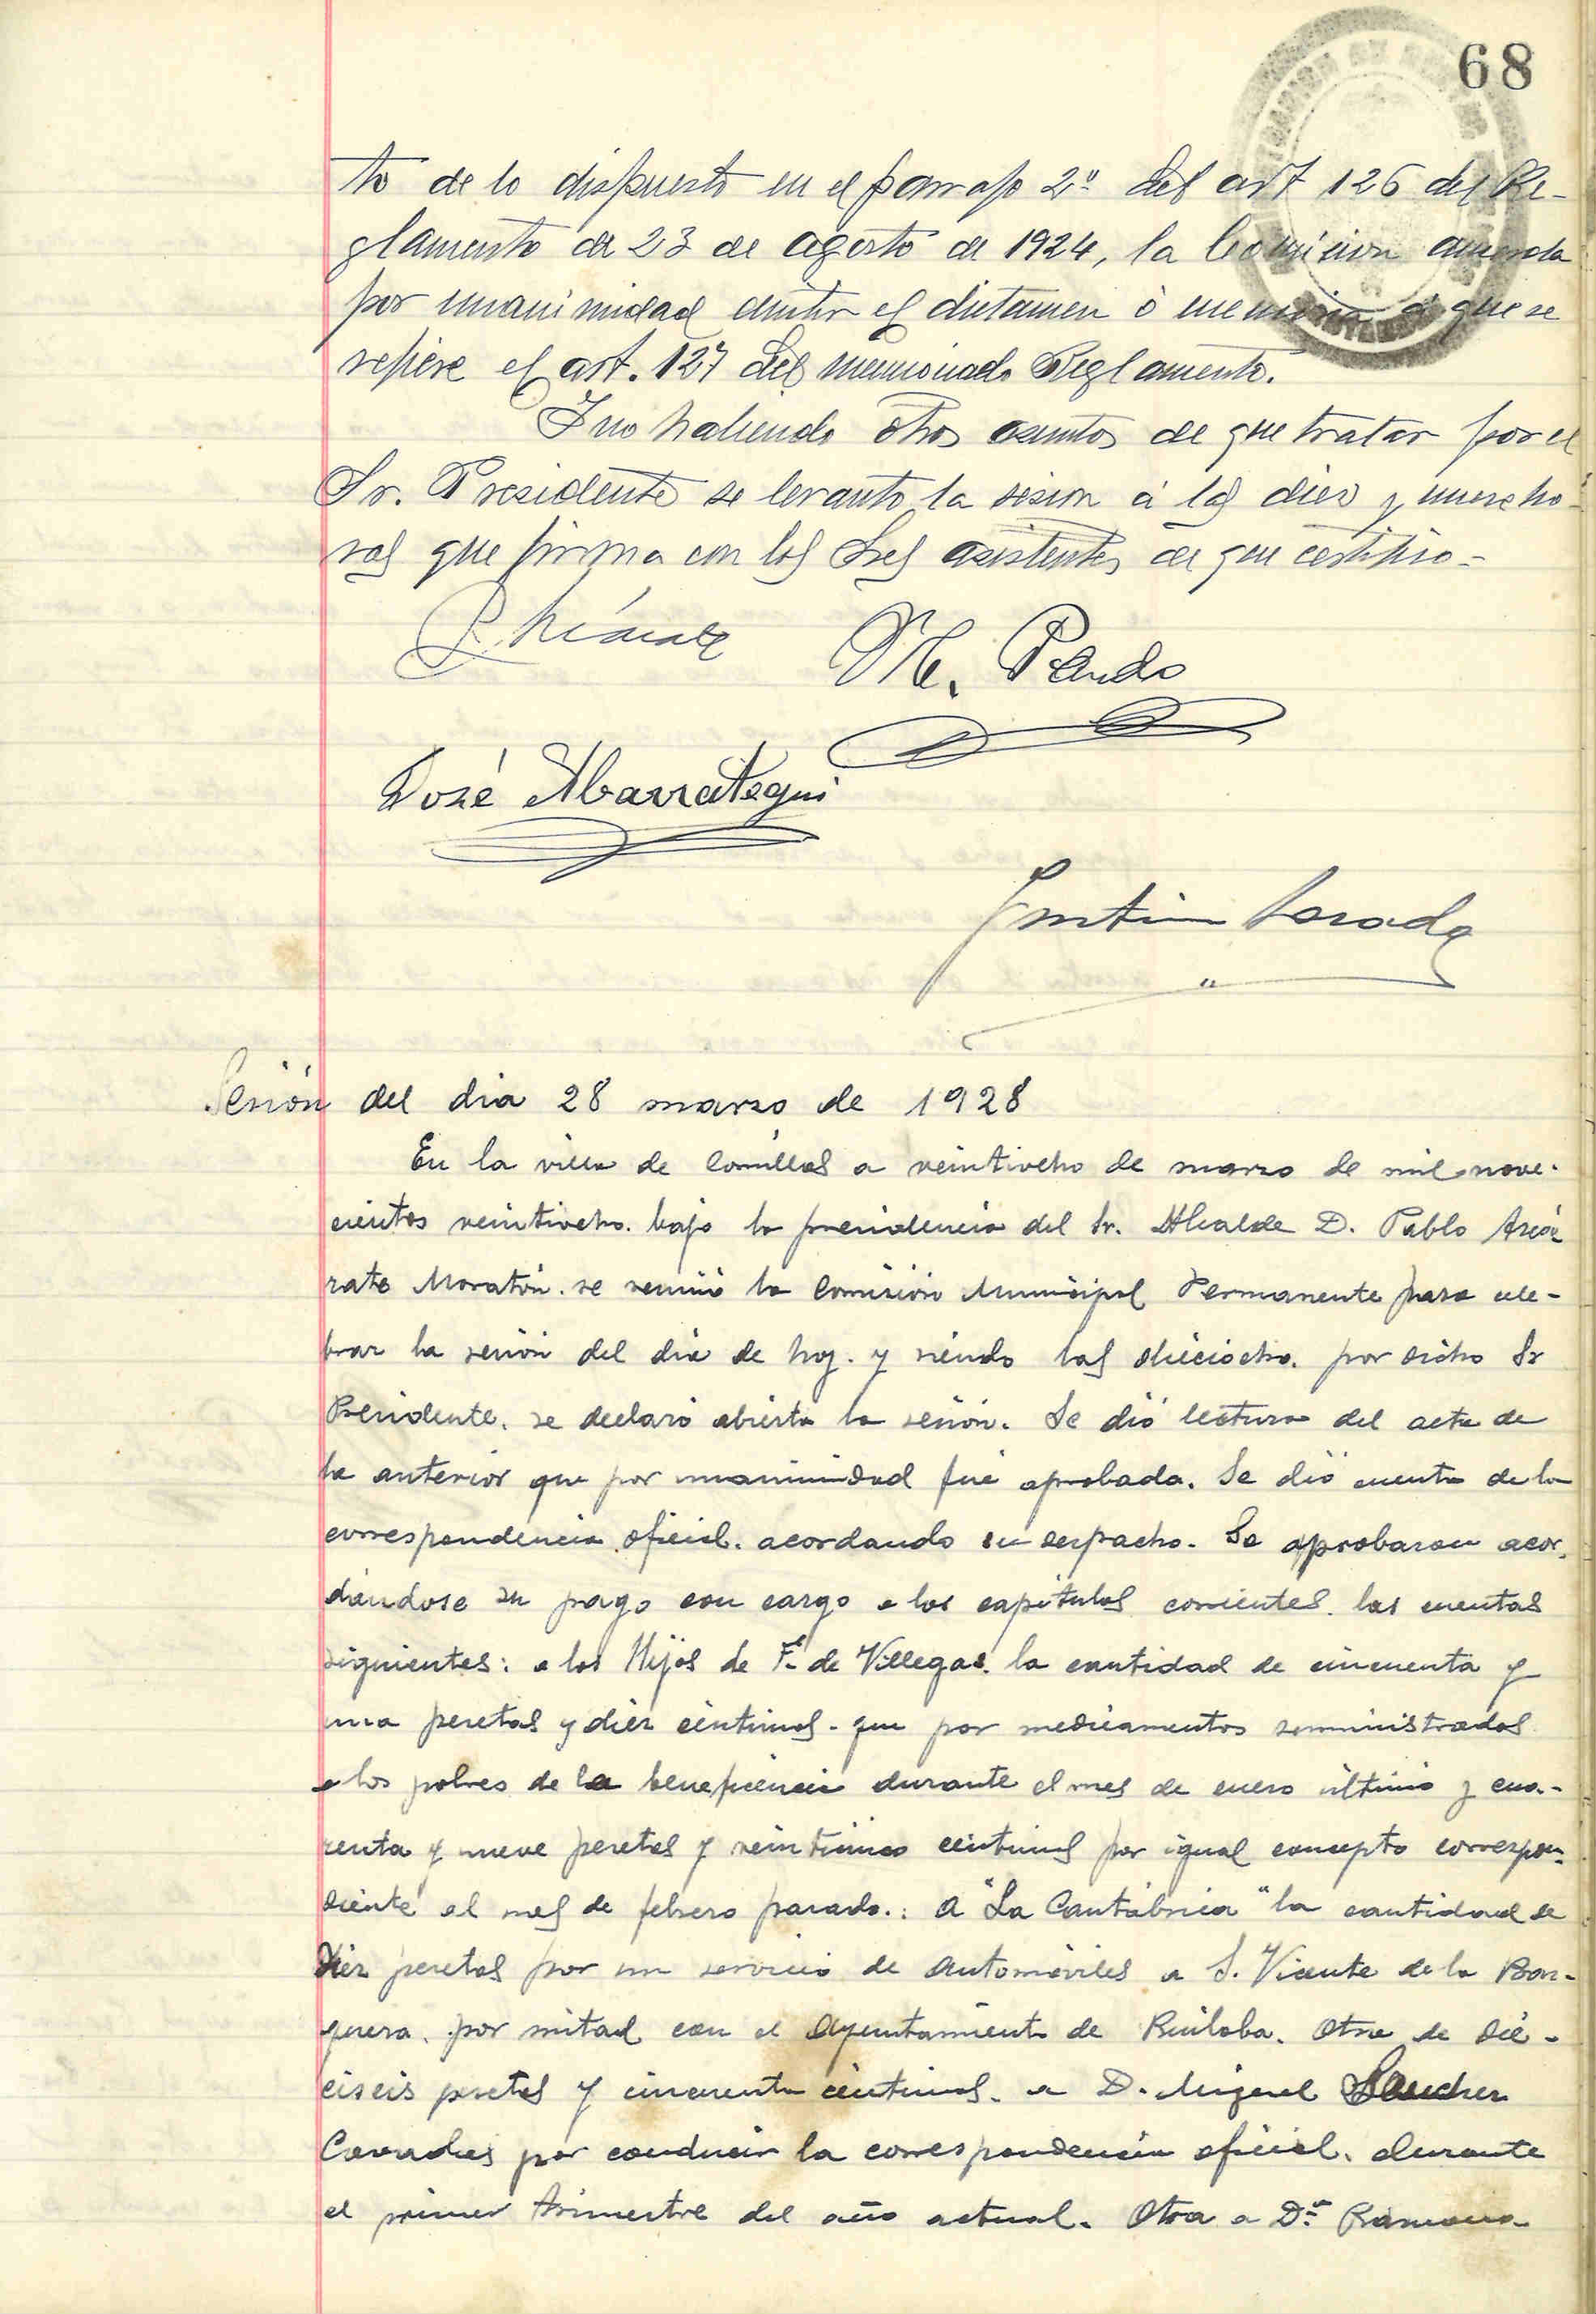 68
to de lo dispuesto en el parrafo 2º del art 126 del Re-
glamento de 23 de agosto de 1924, la Comision acuerda
por unanimidad emitir el dictamen ó memoria á que se
refiere el art. 127 del mencionado Reglamento.
Y no habiendo otros asuntos de que tratar por el
Sr. Presidente se levanto la sesion á las diez y nueve ho-
ras que firma con los Sres asistentes de que certifico-
M. Pando
José Abarrategui
Sesión del dia 28 marzo de 1928
En la villa de Comillas a veintiocho de marzo de mil nove-
cientos veintiocho. bajo la presidencia del Sr. Alcalde D. Pablo Azcá
rate Moratón. se reunió la Comisión Municipal Permanente para cele-
brar la sesión del dia de hoy. y siendo las dieciocho. por dicho Sr
Presidente. se declaró abierta la sesión. Se dió lectura del acta de
la anterior que por unanimidad fué aprobada. Se dió cuenta de la
correspondencia oficial. acordando su despacho. Se aprobaron acor-
dándose su pago con cargo a los capítulos corrientes. las cuentas
siguientes: a los Hijos de F. de Villegas. la cantidad de cincuenta y
una pesetas y diez céntimos. que por medicamentos suministrados
a los pobres de la beneficencia durante el mes de enero último y cua-
renta y nueve pesetas y veinticinco céntimos por igual concepto correspon-
diente al mes de febrero pasado.: A "La Cantábrica" la cantidad de
diez pesetas por un servicio de automóviles a S. Vicente de la Bar-
quera. por mitad con el Ayuntamiento de Ruiloba. Otra de die-
ciseis pesetas y cincuenta céntimos. a D. Miguel Sanchez
por conducir la correspondencia oficial. durante
el primer trimestre del año actual. Otra a Dª Ramona